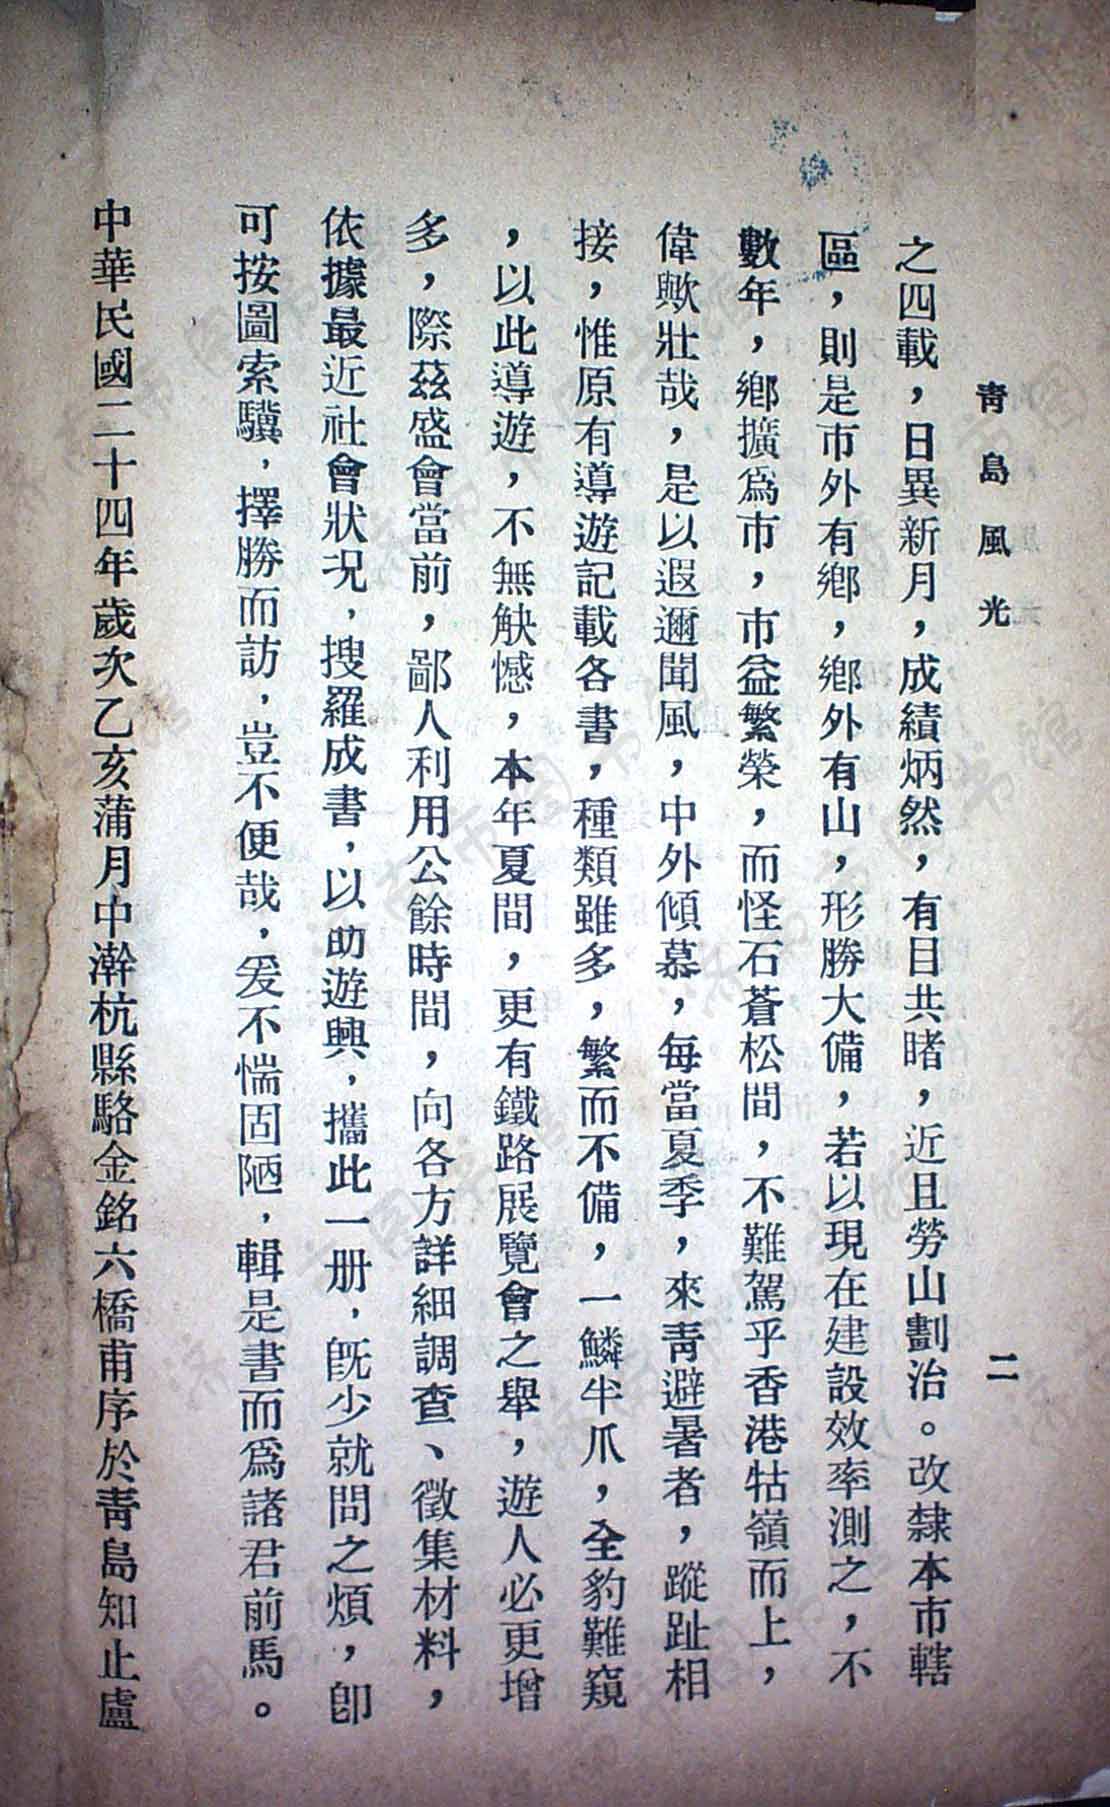 靑島風光
二
之四載，日異新月，成績炳然，有目共睹，近且勞山劃治。改隸本市轄
區，則是市外有鄕，鄕外有山，形勝大備，若以現在建設效率測之，不
數年，鄕擴爲市，市益繁榮，而怪石蒼松間，不難駕乎香港牯嶺而上，
偉歟壯哉，是以遐邇聞風，中外傾慕，每當夏季，來靑避暑者，蹤趾相
接，惟原有導遊記載各書，種類雖多，繁而不備，一鱗半爪，全豹難窺
，以此導遊，不無觖憾，本年夏間，更有鐵路展覽會之舉，遊人必更增
多，際茲盛會當前，鄙人利用公餘時間，向各方詳細調查、徵集材料，
依據最近社會狀况，搜羅成書，以助遊興，攜此一册，旣少就問之煩，卽
可按圖索驥，擇勝而訪，豈不便哉，爰不惴固陋，輯是書而爲諸君前馬。
中華民國二十四年歲次乙亥蒲月中澣杭縣駱金銘六橋甫序於靑島知止盧